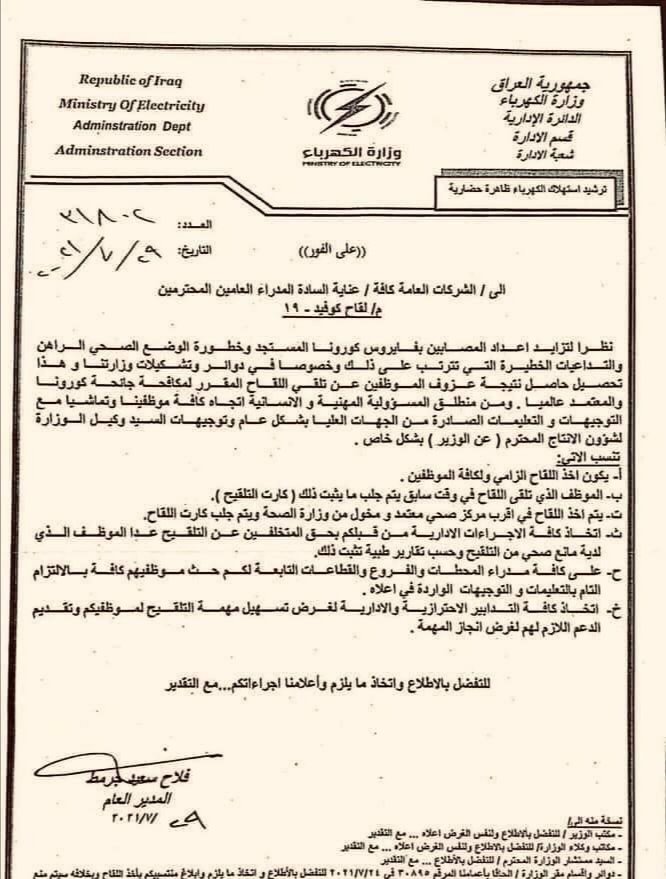 Republic of Iraq
Ministry Of Electricity
Adminstration Dept
Adminstration Section
وزارة الكهرباء
MINISTRY OF ELECTRICITY
جمهورية العراق
وزارة الكهرباء
الدائرة الإدارية
قسم الادارة
شعبة الادارة
ترشيد استهلاك الكهرباء ظاهرة حضارية
العدد: ٣١٨٠٢
التاريخ: ٢٩/٧/٢٠٢١
((على الفور))
الى / الشركات العامة كافة / عناية السادة المدراء العامين المحترمين
م/ لقاح كوفيد - ١٩
نظرا لتزايد اعداد المصابين بفايروس كورونا المستجد وخطورة الوضع الصحي الراهن
والتداعيات الخطيرة التي تترتب على ذلك وخصوصا في دوائر وتشكيلات وزارتنا و هذا
تحصيل حاصل نتيجة عزوف الموظفين عن تلقي اللقاح المقرر لمكافحة جائحة كورونا
والمعتمد عالميا . ومن منطلق المسؤولية المهنية و الانسانية اتجاه كافة موظفينا وتماشيا مع
التوجيهات و التعليمات الصادرة من الجهات العليا بشكل عام وتوجيهات السيد وكيل الوزارة
لشؤون الانتاج المحترم ( عن الوزير ) بشكل خاص .
تنسب الاتي:
أ- يكون اخذ اللقاح الزامي ولكافة الموظفين .
ب- الموظف الذي تلقى اللقاح في وقت سابق يتم جلب ما يثبت ذلك ( كارت التلقيح ).
ت- يتم اخذ اللقاح في اقرب مركز صحي معتمد و مخول من وزارة الصحة ويتم جلب كارت اللقاح.
ث- اتخاذ كافة الاجراءات الادارية من قبلكم بحق المتخلفين عن التلقيح عدا الموظف الذي
لدية مانع صحي من التلقيح وحسب تقارير طبية تثبت ذلك.
ح- على كافة مدراء المحطات والفروع والقطاعات التابعة لكم حث موظفيهم كافة بالالتزام
التام بالتعليمات و التوجيهات الواردة في اعلاه .
خ- اتخاذ كافة التدابير الاحترازية والادارية لغرض تسهيل مهمة التلقيح لموظفيكم وتقديم
الدعم اللازم لهم لغرض انجاز المهمة .
للتفضل بالاطلاع واتخاذ ما يلزم وأعلامنا اجراءاتكم...مع التقدير
فلاح سعيد جرمط
المدير العام
٢٩ /٢٠٢١/٧
نسخة منه الى/
- مكتب الوزير / للتفضل بالاطلاع ولنفس الغرض اعلاه ... مع التقدير
- مكاتب وكلاء الوزارة/ للتفضل بالاطلاع ولنفس الغرض اعلاه ... مع التقدير
- السيد مستشار الوزارة المحترم / للتفضل بالأطلاع ... مع التقدير
- دوائر واقسام مقر الوزارة / الحاقا بأعمامنا المرقم ٣٠٨٩٥ في ٢٠٢١/٧/٢٤ للتفضل بالأطلاع و اتخاذ ما يلزم وابلاغ منتسبيكم بأخذ اللقاح وبخلافه سيتم منع